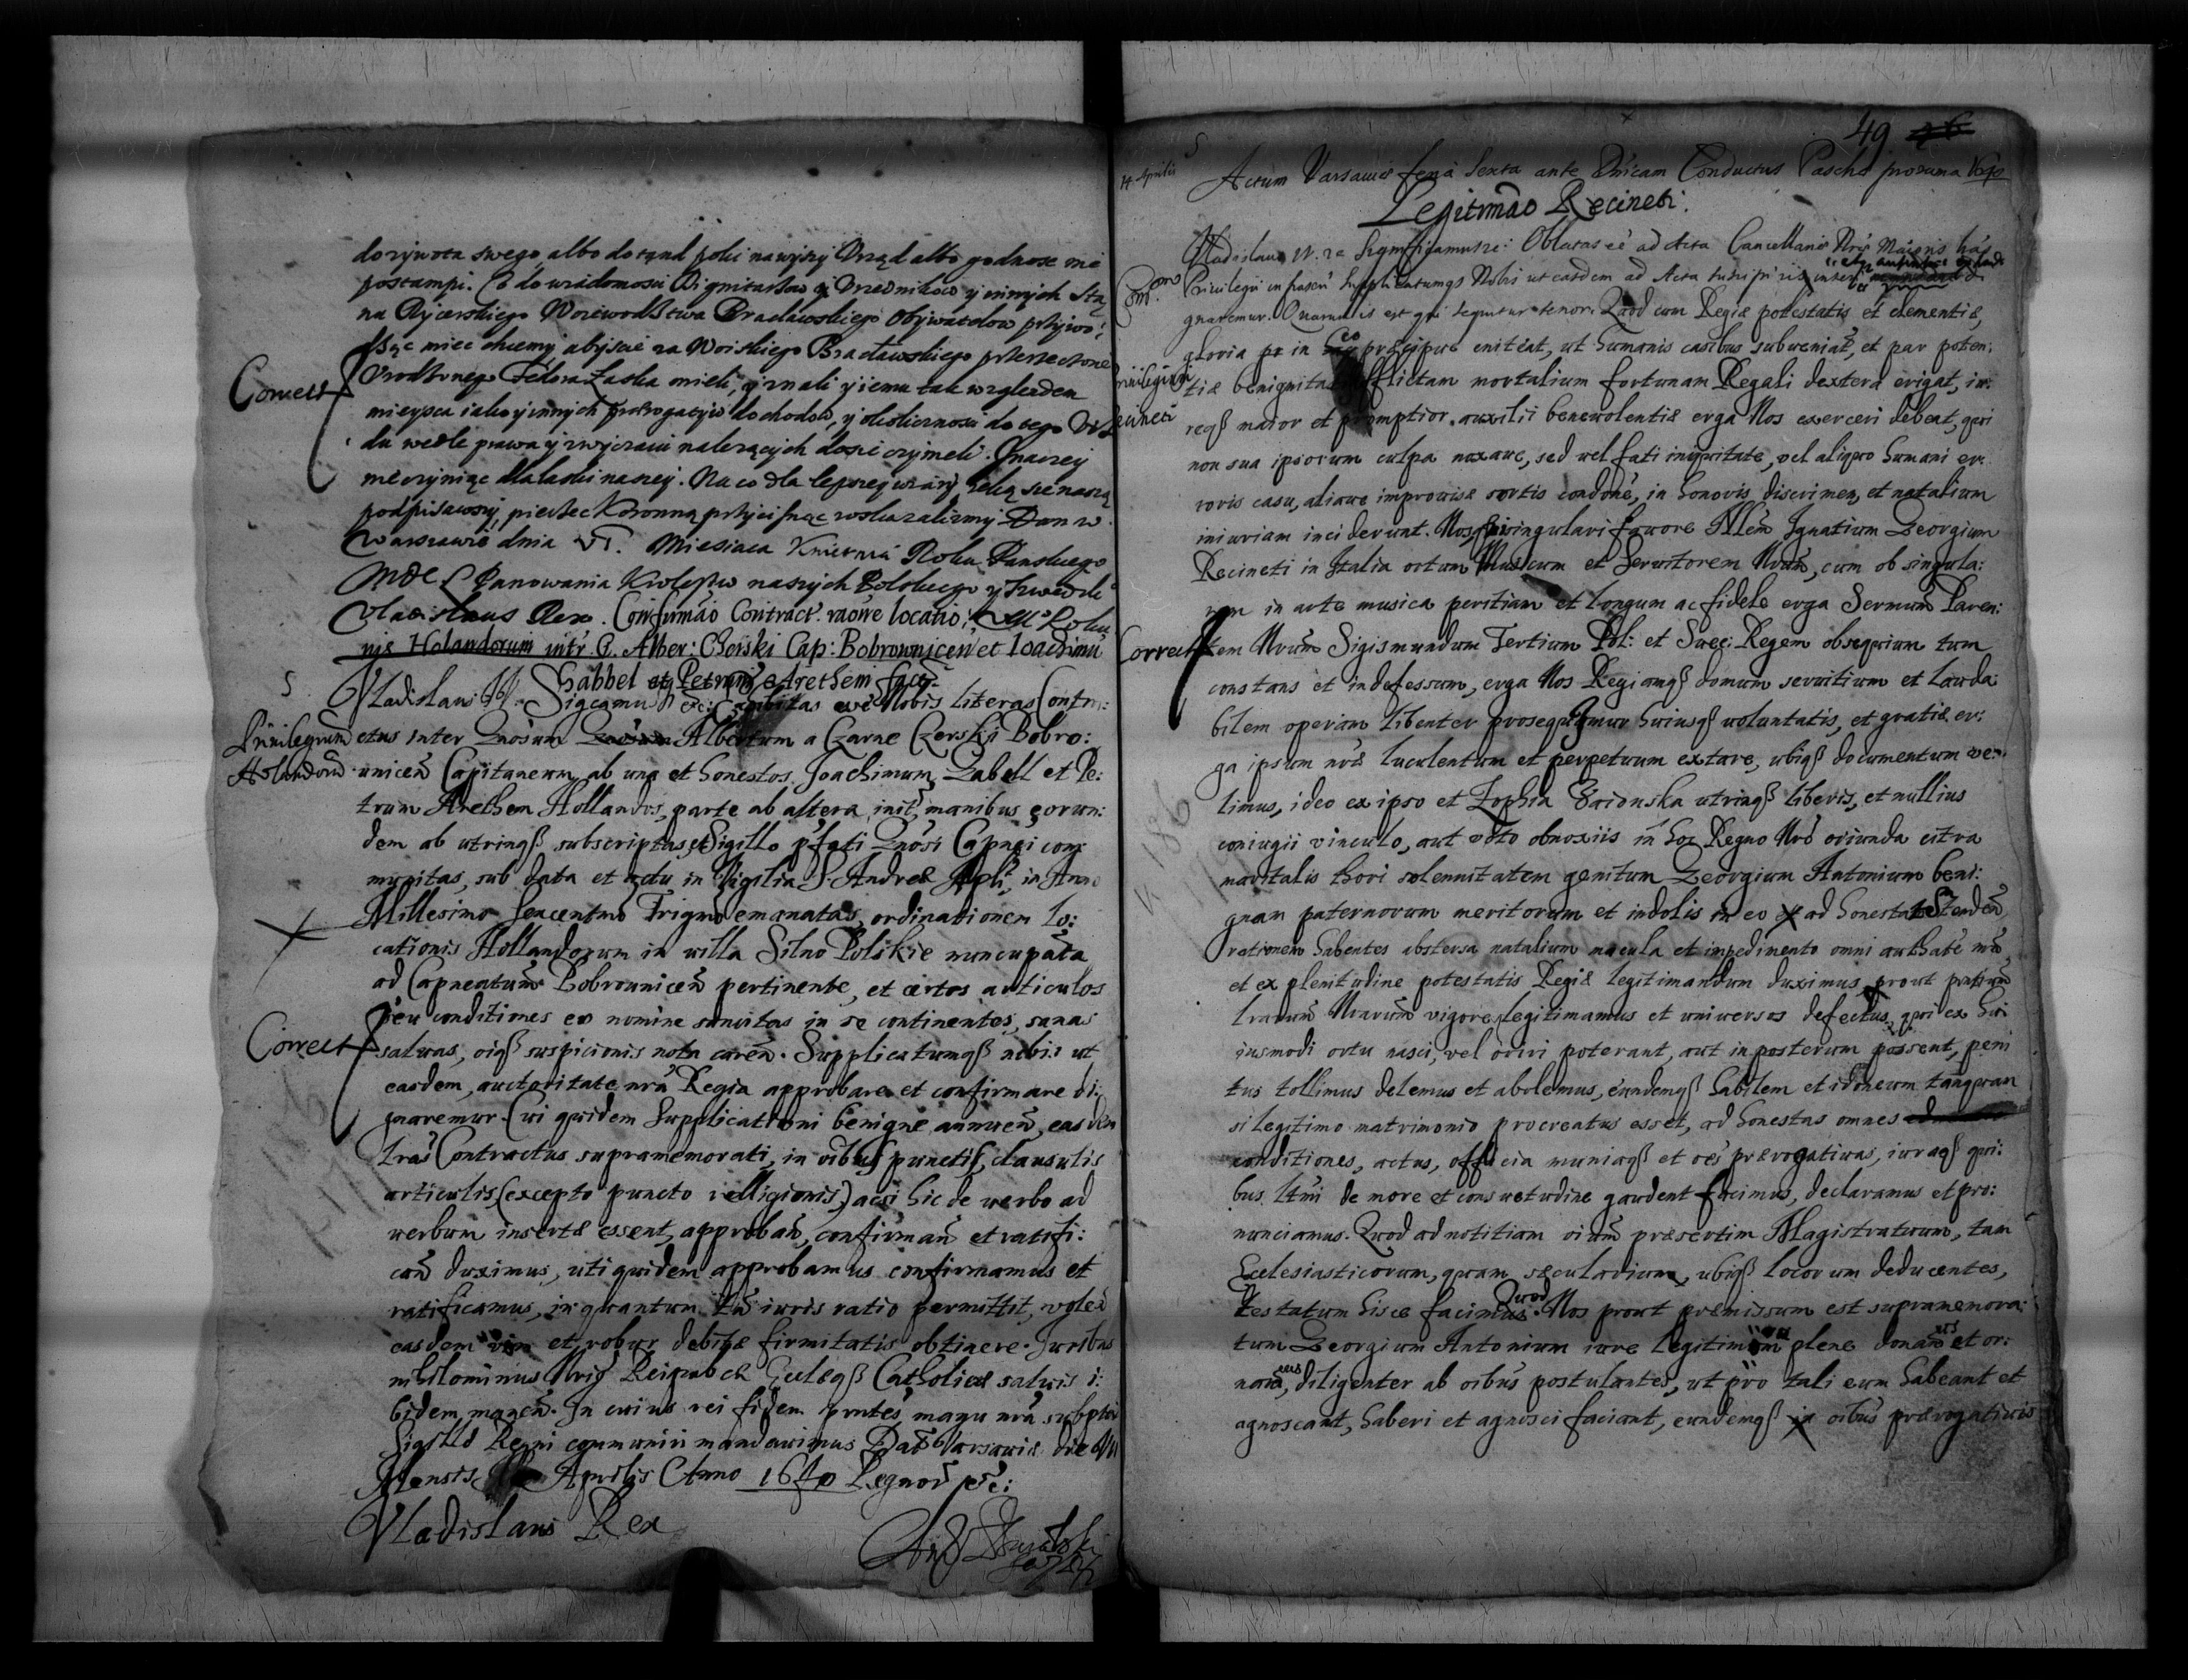 do zywota swego albo do tąnd poki na wyszy Vrząd albo godnosc nie
postąmpi. Co do wiadomosci Dignitarzow y Vrzednikow y innych Sta
na Rycerskiego Woiewodstwa Bracławskiego Obywatelow przywo:
dząc miec chcemy abyscie za Woiskiego Bracławskiego przerzeczone
Vrodzonego Fedora Łaska mieli, y znali y iemu tak względem
mieysca iako y innych prerogatyw dochodow, y okolicznosci do tego Vrzę
du wedle prawa y zwyczaiu nalezących dosic czynieli. Inaczey
nie czyniąc dla łaski naszey. Na co dla lepszey wiary ręką się naszą
podpisawszy, pieczęc Koronną przycisnąc rozkazalismy Dan w
Warszawie dnia VI. Miesiaca Kwietnia Roku Panskiego
MDCXL Panowania Krolestw naszych Polskiego y Szwedz
Vladislaus Rex. Confirmão Contract. raõne locatio:
nis Holandorum intr G. Alber: Cherski Cap: Bobrownicen et Ioachimu
Shabbel et Petrum Arethem fact
5
Vladislaus IV. Sigcamus etc: Exhibitas eẽ Nobis literas Contra:
Priuilegium Holandorũ
ctus inter Gnosum Albertum a Czarne Czerski Bobro:
unicen Capitaneum ab una et honestos Joachimum Zabell et Pe:
trum Arethem Hollandos, parte ab altera init, manibus eorun:
dem ab utrinq subscriptas, et Sigillo pfati Gnosi Capnei com
munitas, sub data et actu in Vigilia S. Andreæ Apli, in Anno
Millesimo Sexcentmo Trigmo emanatas, ordinationem lo:
cationis Hollandorum in villa Silno Polskie nuncupata
ad Capneatum Bobrounicen pertinente, et certos articulos
Correct
seu conditiones eo nomine sancitas in se continentes, sanas
saluas, oiq suspicionis nota caren. Supplicatumq nobis ut
easdem, auctoritate nra Regia approbare et confirmare di:
gnaremur. Cui quidem Supplicationi benigne annuen, easdem
lras Contractus supramemorati, in oibus punctis, clausulis
articulis (excepto puncto relligionis,) acsi hic de verbo ad
verbum insertæ essent, approban, confirman et ratifi:
can duximus, uti quidem approbamus confirmamus et
ratificamus, in quantum tm iuris ratio permittit, volen
easdem vim et robur debitæ firmitatis obtinere. Juribus
nihilominus Nris Reipub ck Eccleq Catholicæ saluis i:
bidem manen. In cuius rei fidem pntes manu nra subptas
Sigillo Regni communiri mandauimus Dat Varsauiæ die VII
Mensis Aprilis Anno 1640 Regnor
Vladislaus Rex
49
5
14 Aprilis
Actum Varsauiæ feria Sexta ante Dnicam Conductus Paschæ proxima 1640
Legitimão Recineti.
Vladislaus IV. re Significamus re: Oblatas eẽ ad Acta Cancellariæ Nræ Maioris has
Priuilegii infrascri Supplicatumq Nobis ut easdem ad Acta
gnaremur. Quarum is est qui sequitur tenor. Quod cum Regiæ potestatis et clementiæ,
gloria in eo præcipue eniteat, ut humanis casibus subueniat, et par poten:
Priuilegium Recineti
tiæ benignitas afflictam mortalium fortunam Regali dextera erigat, iu:
req maior et promptior auxilii beneuolentiæ erga Nos exerceri debeat, qui
non sua ipsorum culpa noxaue, sed vel fati iniquitate, vel aliquo humani er:
roris casu, aliaue improuisæ sortis condone, in honoris discrimen, et natalium
iniuriam inciderunt. Nos singulari fauore Illem Ignatium Georgium
Recineti in Italia ortum Musicum et Seruitorem Nrum, cum ob singula:
rem in arte musica peritiam et longum ac fidele erga Sermum Paren:
Correct
tem Nrum Sigismundum Tertium Pol: et Suec: Regem obsequium tum
constans et indefessum, erga Nos Regiamq domum seruitium et lauda:
bilem operam libenter prosequamur huiusq voluntatis, et gratiæ er:
ga ipsum nræ luculentum et perpetuum extare, ubiq documentum ve:
limus, ideo ex ipso et Zophia utriusq liberis, et nullius
coniugii vinculo, aut voto obnoxiis in hoc Regno Nro oriunda citra
maritalis thori solennitatem genitum Georgium Antonium beni:
gnam paternorum meritorum et indolis in eo ad honesta tenden
rationem habentes abstersa natalium macula et impedimento omni authate nra
et ex plenitudine potestatis Regiæ legitimandum duximus, prout pntium
lrarum Nrarum vigore legitimamus et uniuersos defectus, qui ex hu
iusmodi ortu nasci, vel oriri poterant, aut in posterum possent, peni
tus tollimus delemus et abolemus, eundemq habilem et idoneum tanquam
si legitimo matrimonio procreatus esset, ad honestas omnes
conditiones, actus, officia muniaq et oes prærogatiuas, iuraq qui:
bus ltmi de more et consuetudine gaudent facimus, declaramus et pro:
nunciamus. Quod ad notitiam oium præsertim Magistratuum, tam
Ecclesiasticorum, quam sæcularium, ubiq locorum deducentes,
testatum hisce facimus. Quod Nos prout præmissum est supramemora:
tum Georgium Antonium iure legitimorum plene donamus et or:
namus, diligenter ab oibus postulantes, ut pro tali eum habeant et
agnoscant, haberi et agnosci faciant, eundemq oibus prærogatiuis